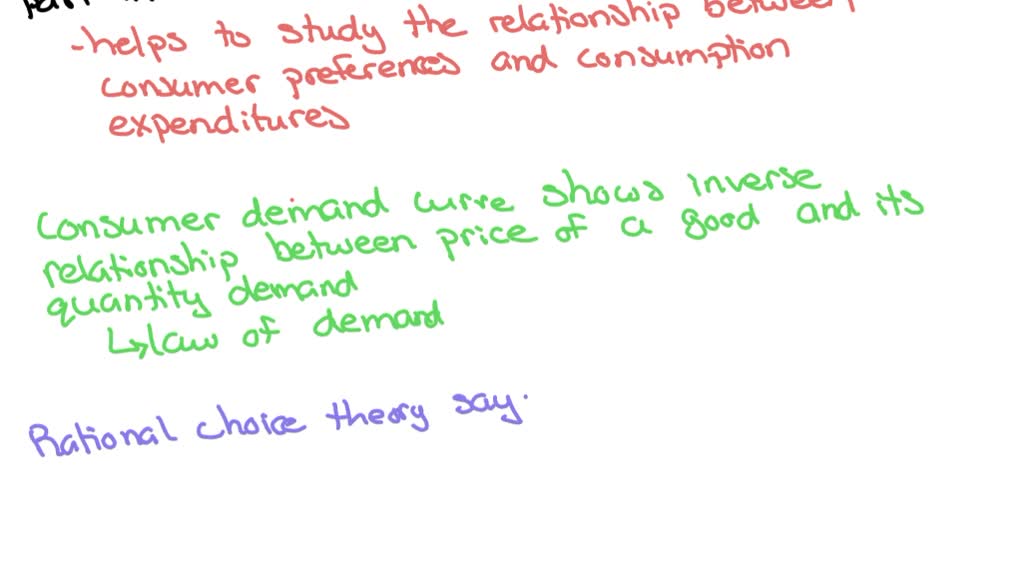 -helps to study the relationship between
consumer preferences and consumption
expenditures
Consumer demand curve shows inverse
relationship between price of a good and its
quantity demand
↳law of demand
Rational choice theory say.